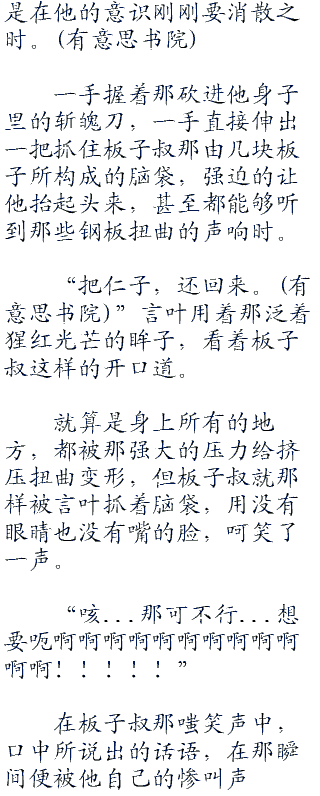 是在他的意识刚刚要消散之
时。(有意思书院)
一手握着那砍进他身子
里的斩魄刀，一手直接伸出
一把抓住板子叔那由几块板
子所构成的脑袋，强迫的让
他抬起头来，甚至都能够听
到那些钢板扭曲的声响时。
“把仁子，还回来。(有
意思书院)”言叶用着那泛着
猩红光芒的眸子，看着板子
叔这样的开口道。
就算是身上所有的地
方，都被那强大的压力给挤
压扭曲变形，但板子叔就那
样被言叶抓着脑袋，用没有
眼睛也没有嘴的脸，呵笑了
一声。
“咳...那可不行...想
要呃啊啊啊啊啊啊啊啊啊啊
啊啊！！！！！”
在板子叔那嗤笑声中，
口中所说出的话语，在那瞬
间便被他自己的惨叫声